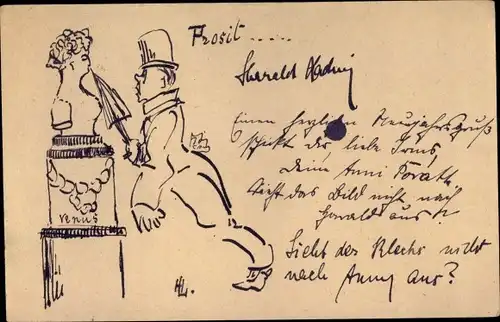 Prosit.....
Harald
Einen herzlichen Neujahrsgruß
schickt dir, liebe
deine Anni
Sieht das Bild nicht nach
Harald aus?
Sieht der Klecks nicht
nach Anny aus?
Venus
HL.